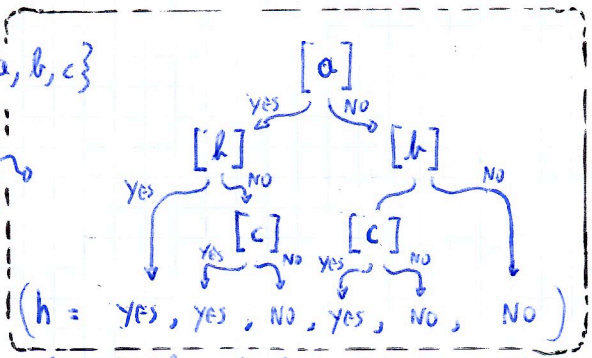 a, b, c}
[a]
yes NO
[b] [b]
yes NO NO
[c] [c]
yes NO yes NO
(h = yes, yes, NO, yes, NO, NO)